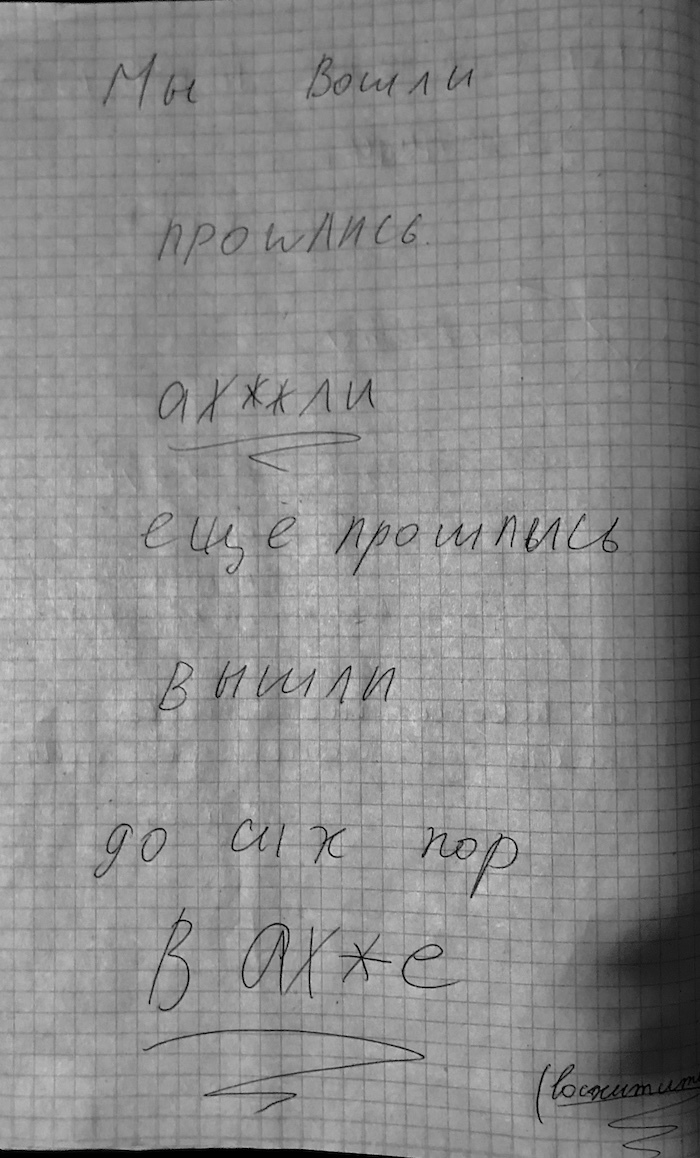 Мы Вошли
прошлись.
ахжхли
ещё прошлысь
вышли
до сих пор
в ахже
(восхитит